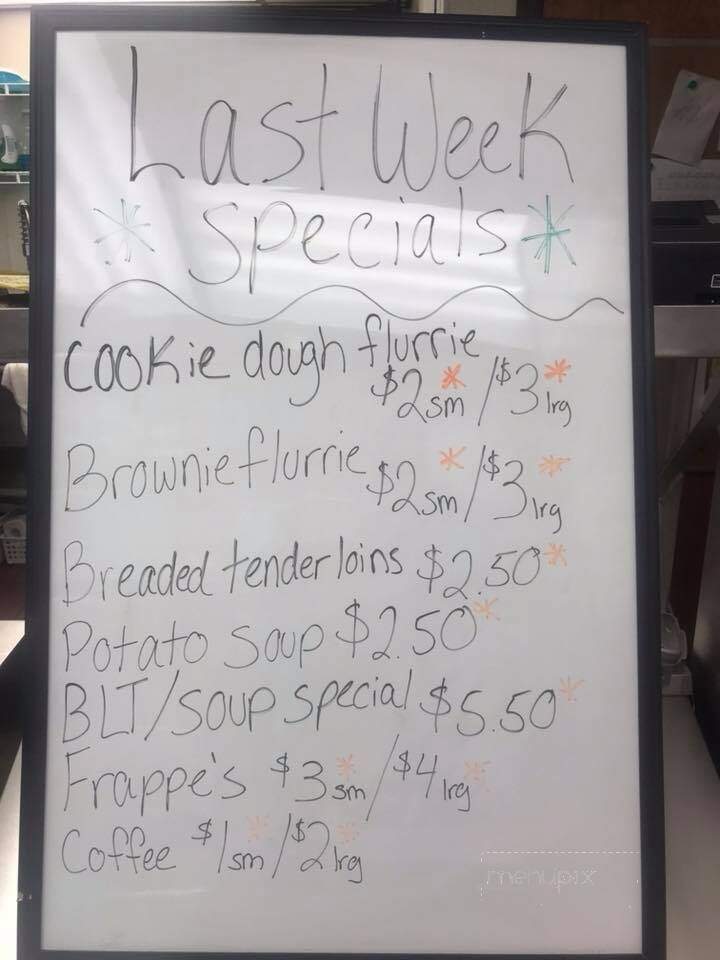 Last Week
* Specials *
Cookie dough flurrie
$2 sm * / $3 lrg *
Brownie flurrie $2 sm * / $3 lrg *
Breaded tenderloins $2.50 *
Potato soup $2.50 *
BLT/soup special $5.50 *
Frappe's $3 sm * / $4 lrg *
Coffee $1 sm * / $2 lrg *
menupix